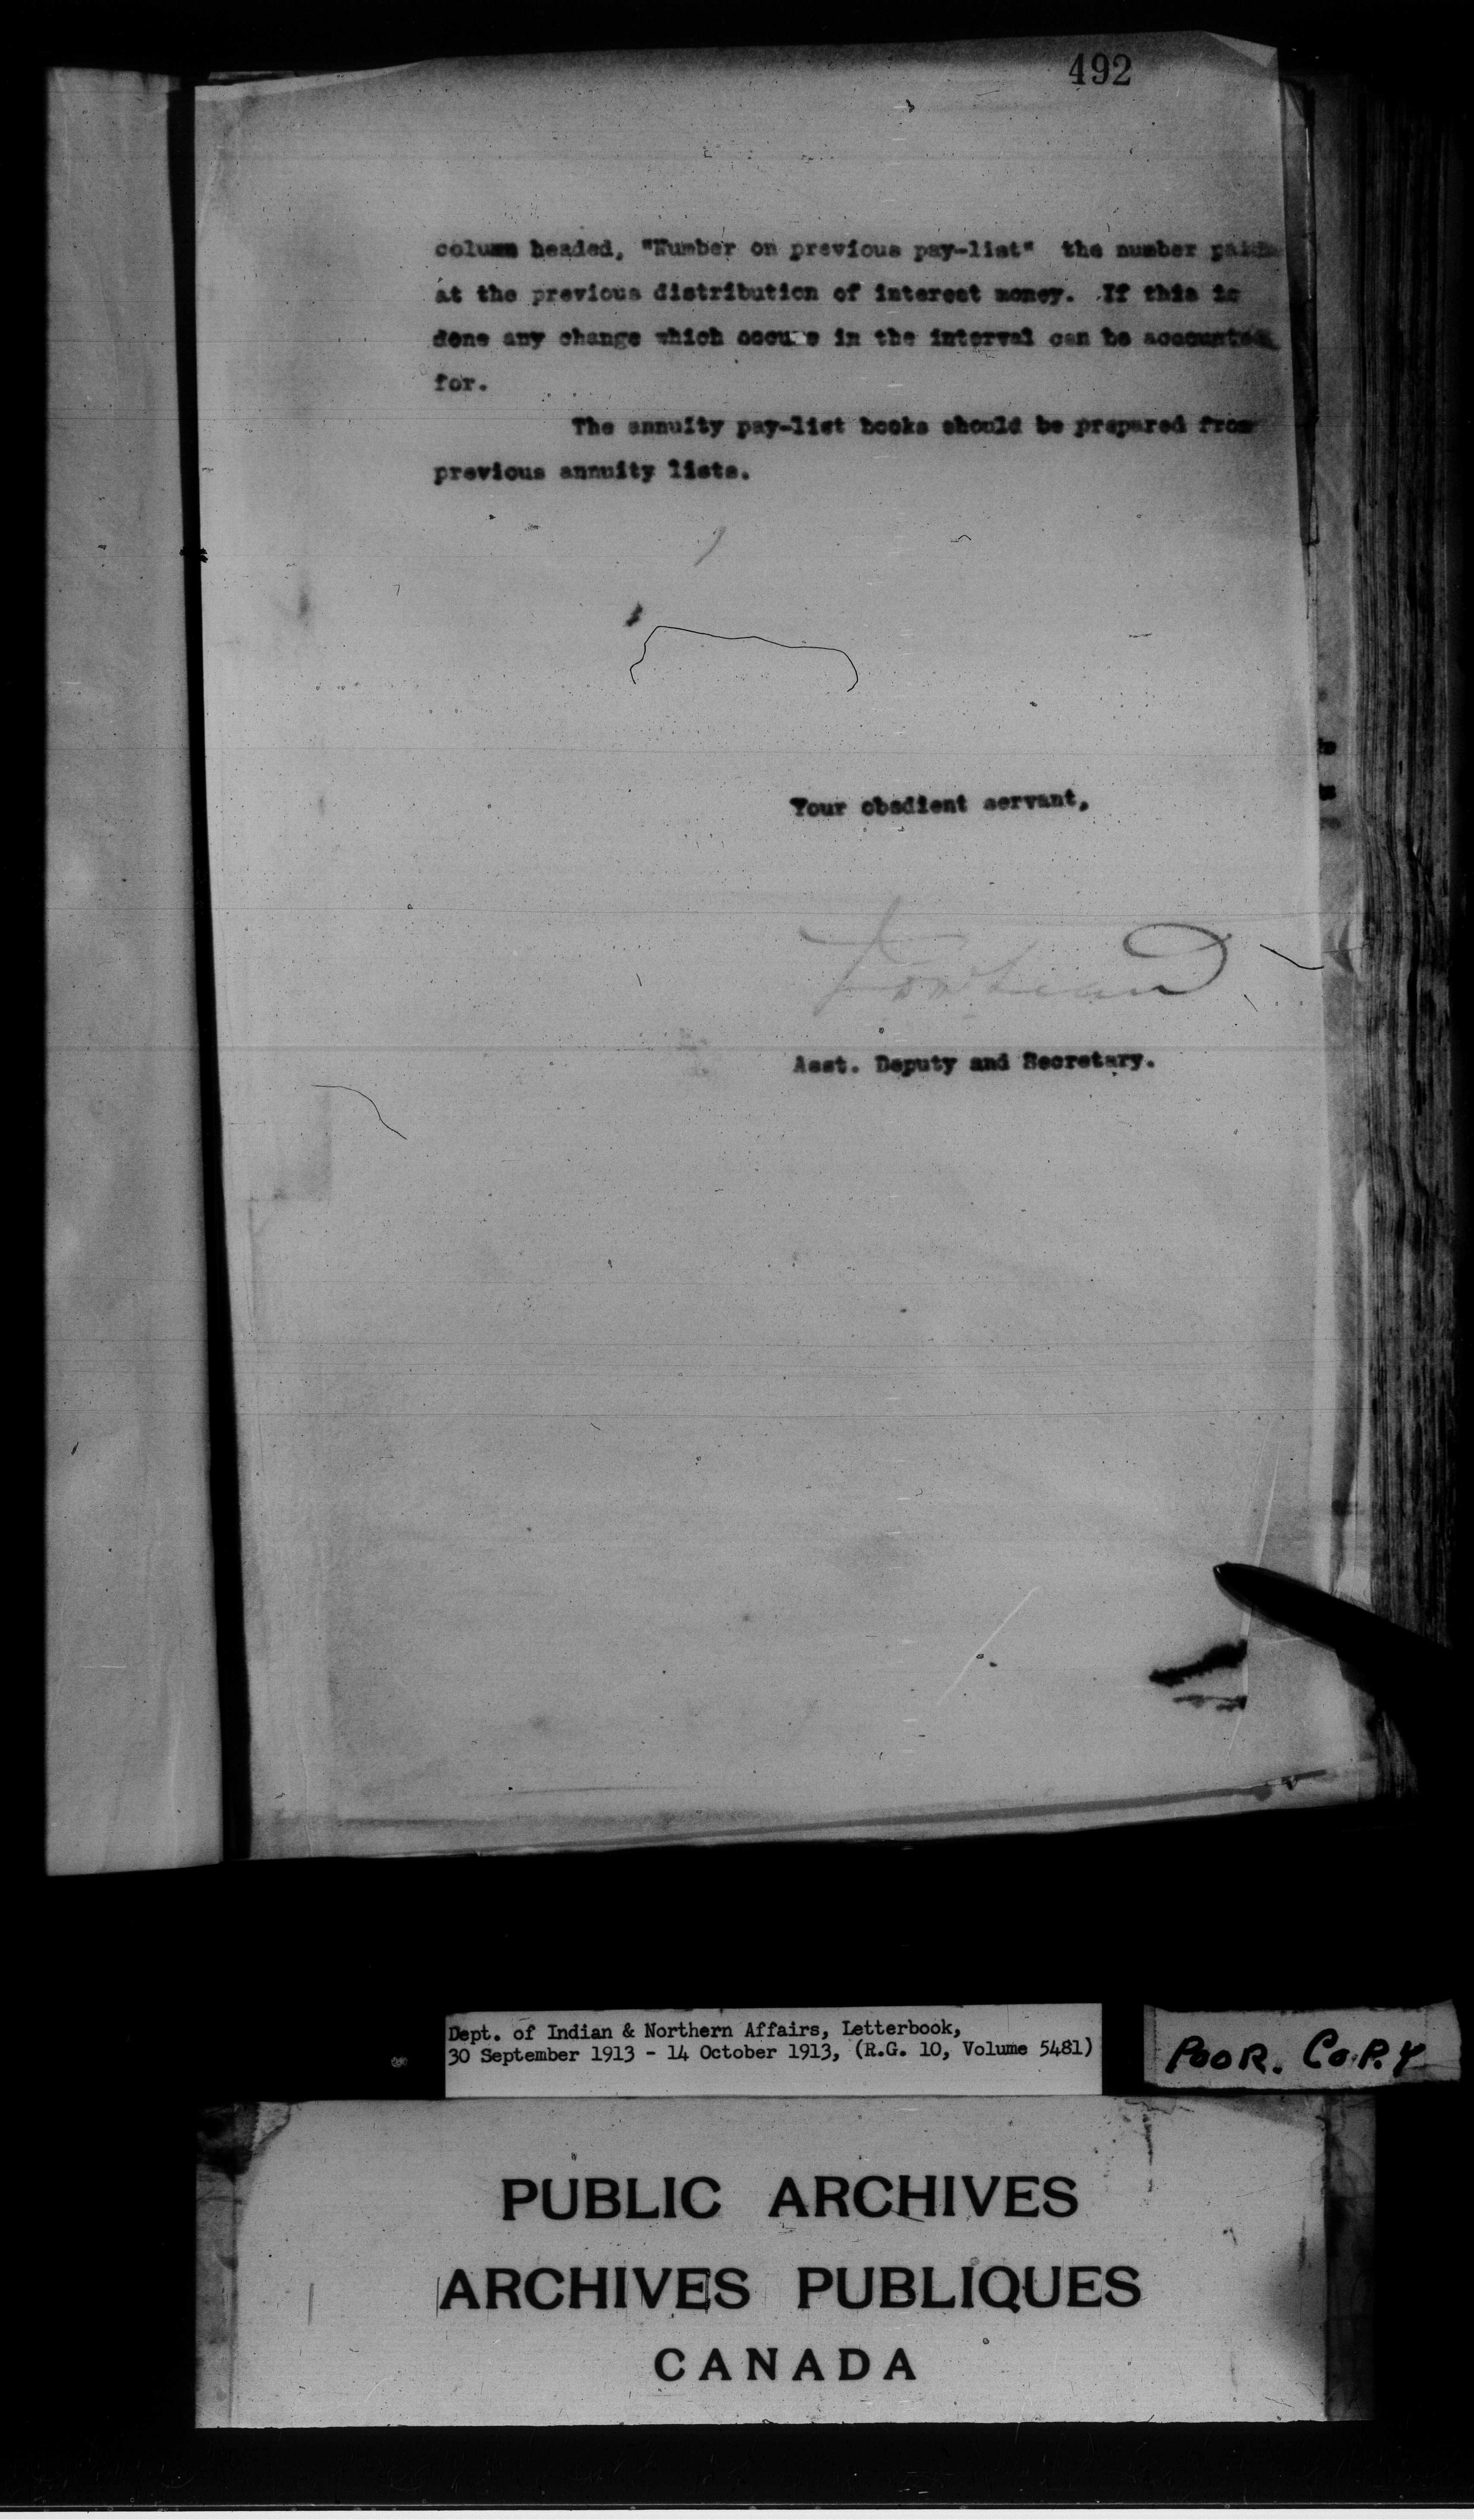 492
column headed, "Number on previous pay-list" the number paid
at the previous distribution of interest money. If this is
done any change which occurs in the interval can be accounted
for.
The annuity pay-list books should be prepared from
previous annuity lists.
Your obedient servant,
Asst. Deputy and Secretary.
Dept. of Indian & Northern Affairs, Letterbook,
30 September 1913 - 14 October 1913, (R.G. 10, Volume 5481)
POOR. COPY
PUBLIC ARCHIVES
ARCHIVES PUBLIQUES
CANADA